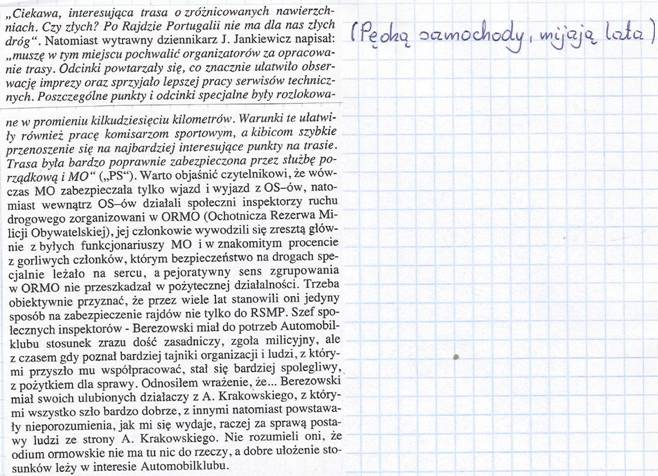 „Ciekawa, interesująca trasa o zróżnicowanych nawierzch-
niach. Czy złych? Po Rajdzie Portugalii nie ma dla nas złych
dróg“. Natomiast wytrawny dziennikarz J. Jankiewicz napisał:
„muszę w tym miejscu pochwalić organizatorów za opracowa-
nie trasy. Odcinki powtarzały się, co znacznie ułatwiło obser-
wację imprezy oraz sprzyjało lepszej pracy serwisów technicz-
nych. Poszczególne punkty i odcinki specjalne były rozlokowa-
ne w promieniu kilkudziesięciu kilometrów. Warunki te ułatwi-
ły również pracę komisarzom sportowym, a kibicom szybkie
przenoszenie się na najbardziej interesujące punkty na trasie.
Trasa była bardzo poprawnie zabezpieczona przez służbę po-
rządkową i MO“ („PS“). Warto objaśnić czytelnikowi, że wów-
czas MO zabezpieczała tylko wjazd i wyjazd z OS–ów, nato-
miast wewnątrz OS–ów działali społeczni inspektorzy ruchu
drogowego zorganizowani w ORMO (Ochotnicza Rezerwa Mi-
licji Obywatelskiej), jej członkowie wywodzili się zresztą głów-
nie z byłych funkcjonariuszy MO i w znakomitym procencie
z gorliwych członków, którym bezpieczeństwo na drogach spe-
cjalnie leżało na sercu, a pejoratywny sens zgrupowania
w ORMO nie przeszkadzał w pożytecznej działalności. Trzeba
obiektywnie przyznać, że przez wiele lat stanowili oni jedyny
sposób na zabezpieczenie rajdów nie tylko do RSMP. Szef spo-
łecznych inspektorów - Berezowski miał do potrzeb Automobil-
klubu stosunek zrazu dość zasadniczy, zgoła milicyjny, ale
z czasem gdy poznał bardziej tajniki organizacji i ludzi, z który-
mi przyszło mu współpracować, stał się bardziej spolegliwy,
z pożytkiem dla sprawy. Odnosiłem wrażenie, że... Berezowski
miał swoich ulubionych działaczy z A. Krakowskiego, z który-
mi wszystko szło bardzo dobrze, z innymi natomiast powstawa-
ły nieporozumienia, jak mi się wydaje, raczej za sprawą posta-
wy ludzi ze strony A. Krakowskiego. Nie rozumieli oni, że
odium ormowskie nie ma tu nic do rzeczy, a dobre ułożenie sto-
sunków leży w interesie Automobilklubu.
(Pędzą samochody, mijają lata)